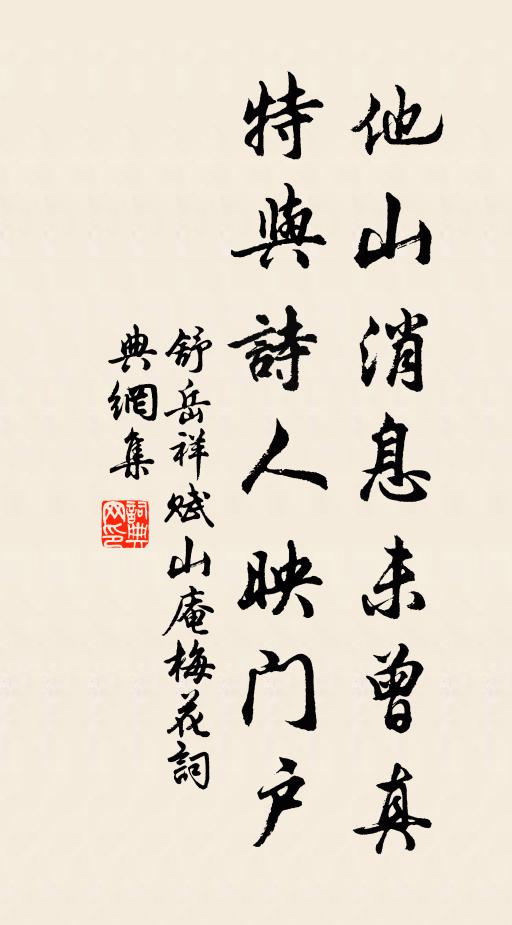 他山消息未曾真
特與詩人映门户
舒岳祥赋山庵梅花詞
典網集
詞典网印